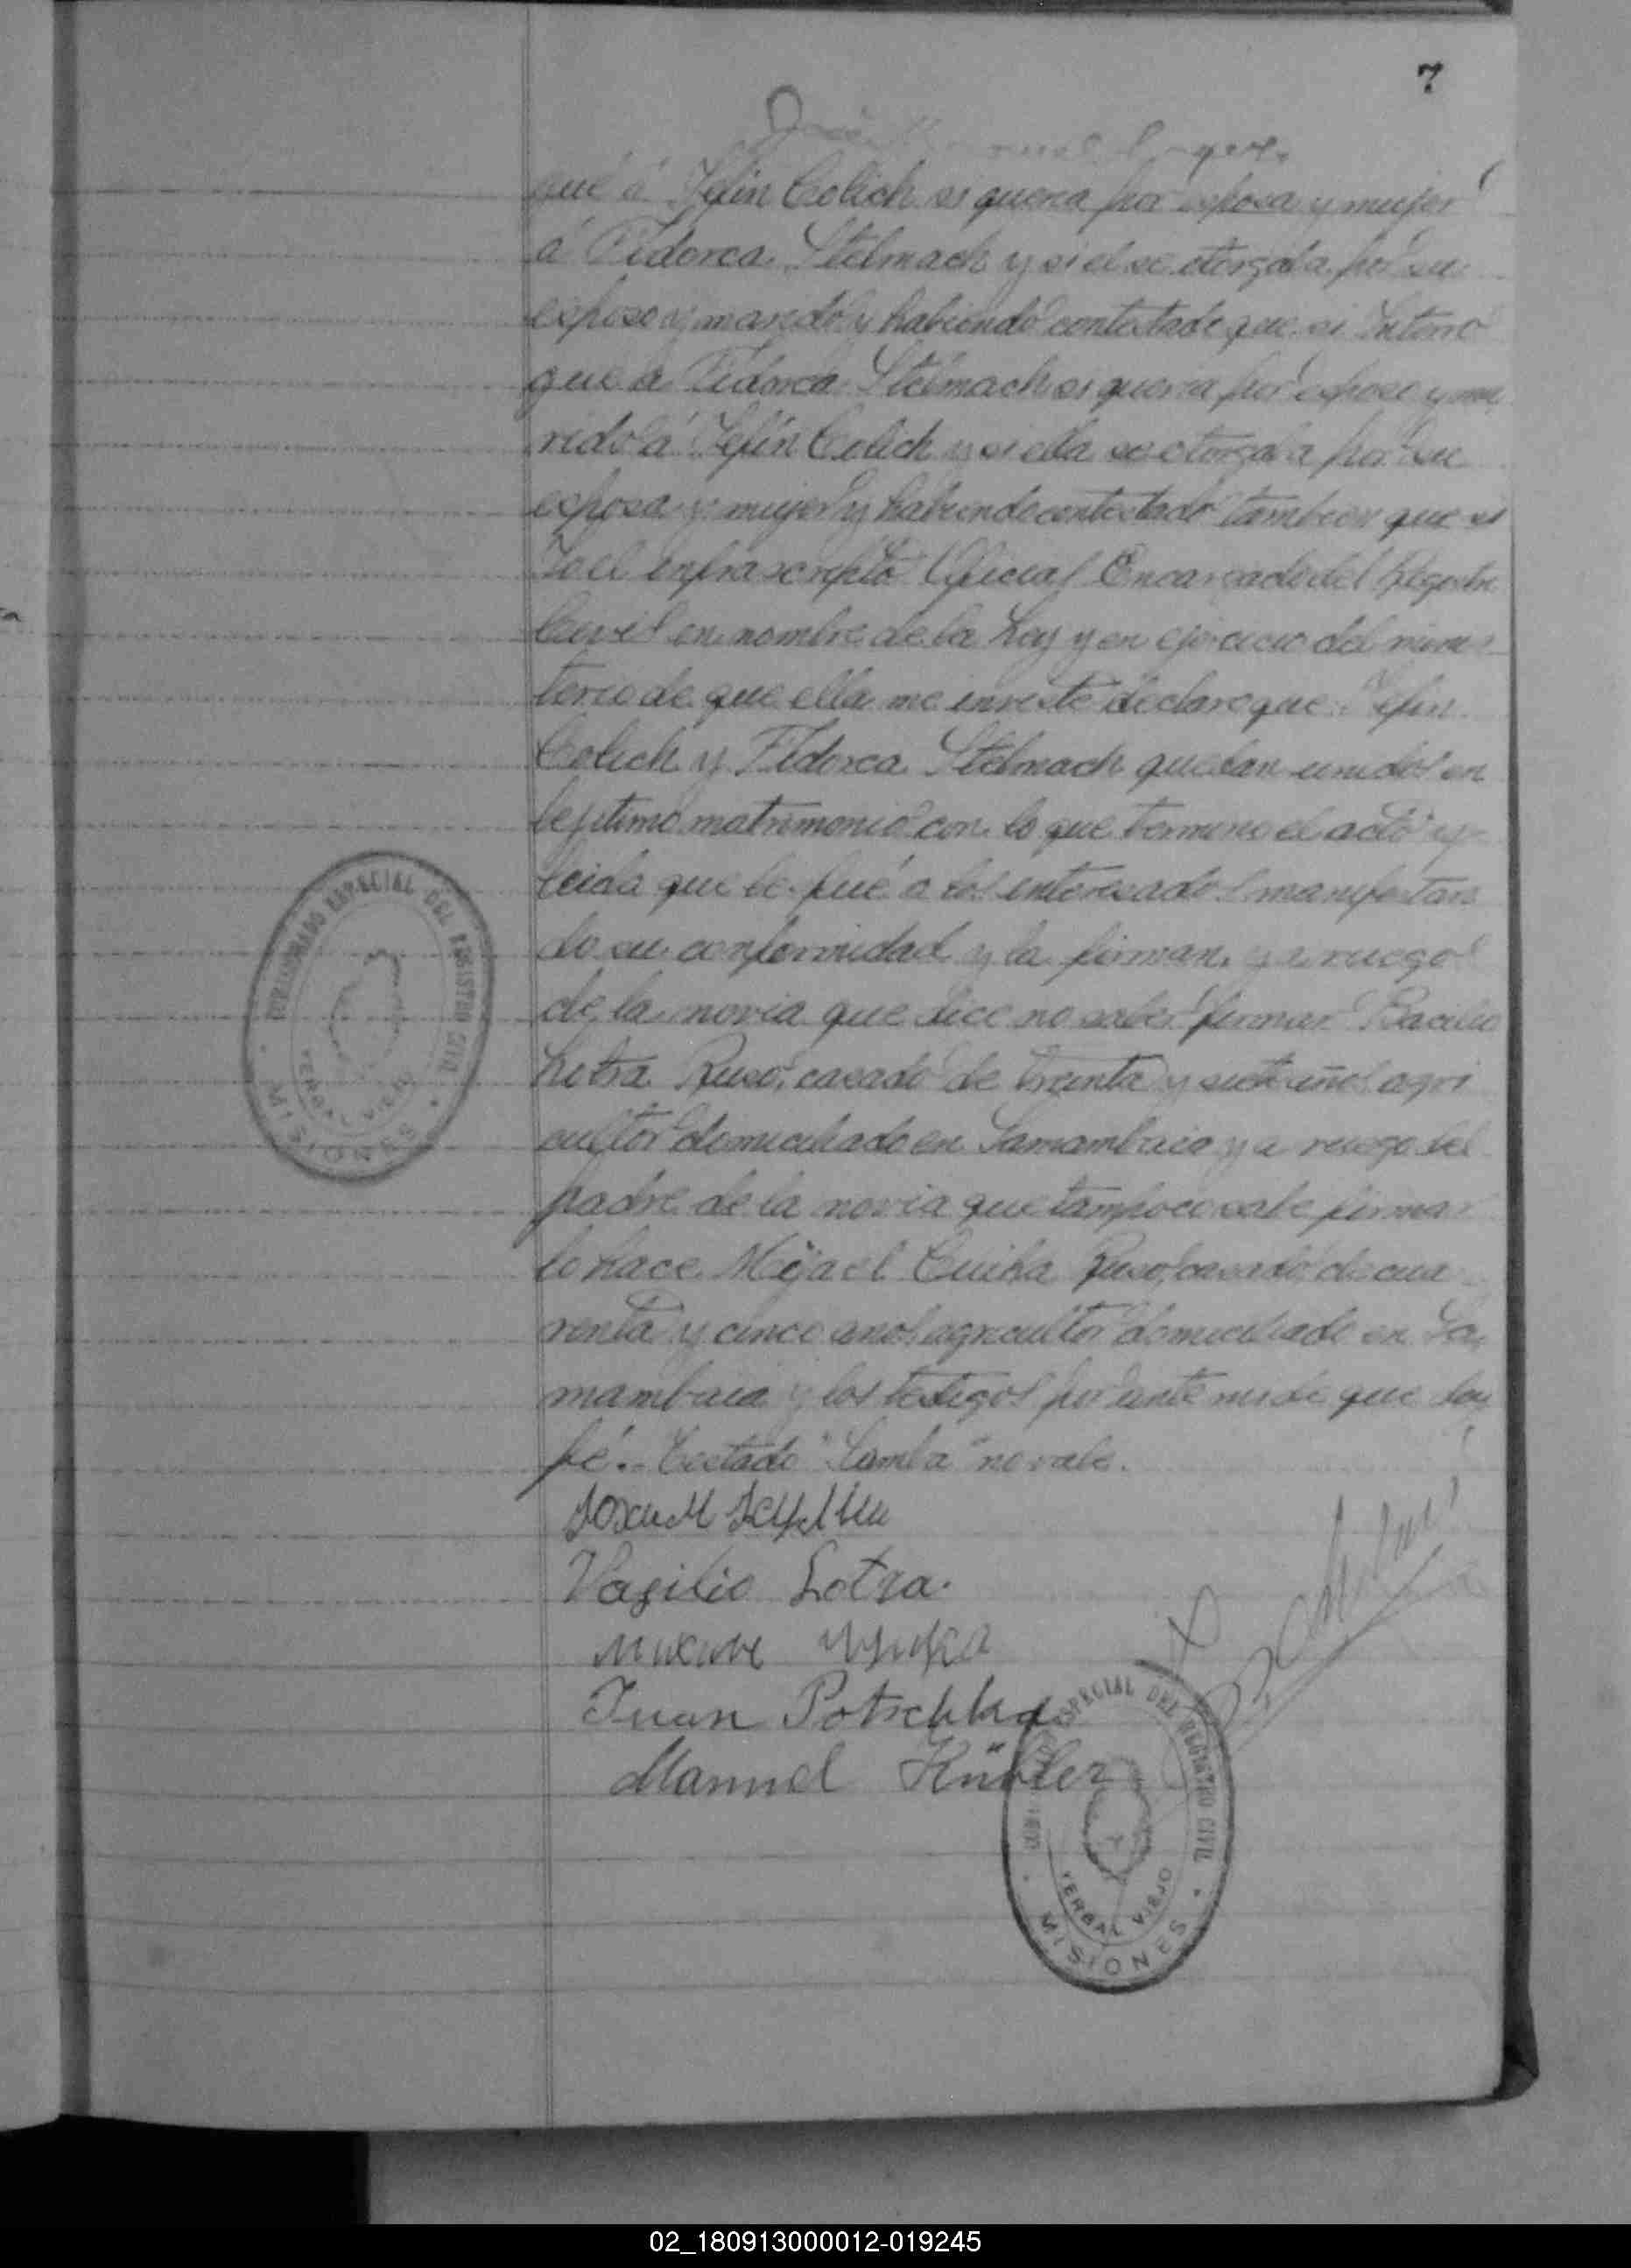 7
qué á Jefin Colich si queria por esposa y mujer
á Fedorca Stelmach y si el se otorgaba por su
esposo y marido y habiendo contestado que si Interro
gue a Fedorca Stelmach si queria por esposo y ma
rido á Jefin Colich y si ella se otorgaba por su
esposa y mujer y habiendo contestado tambien que si
Yo el infrascripto Oficial Encargado del Registro
Civil en nombre de la Ley y en ejercicio del minis
terio de que ella me inviste declaro que Jefin
Colich y Fedorca Stelmach quedan unidos en
lejitimo matrimonio con lo que termino el acto y
leida que le fué a los interesados manifestan
do su conformidad y la firman y a ruego
de la novia que dice no saber firmar Bacilio
Lotra Ruso, casado de treinta y siete años agri
cultor domiciliado en Samambaia y a ruego del
padre de la novia que tampoco sabe firmar
lo hace Mijael Cuika Ruso, casado, de cua
renta y cinco anos agricultor domiciliado en Sa
mambaia y los testigos por ante mi de que doy
fé.- Testado "Samba" no vale.
Vasilio Lotra.
Juan Potschka
Manuel Kübler
COMISARIADO ESPECIAL DEL REGISTRO CIVIL
YERBAL VIEJO
MISIONES
ESPECIAL DEL REGISTRO CIVIL
YERBAL VIEJO
MISIONES
02_180913000012-019245